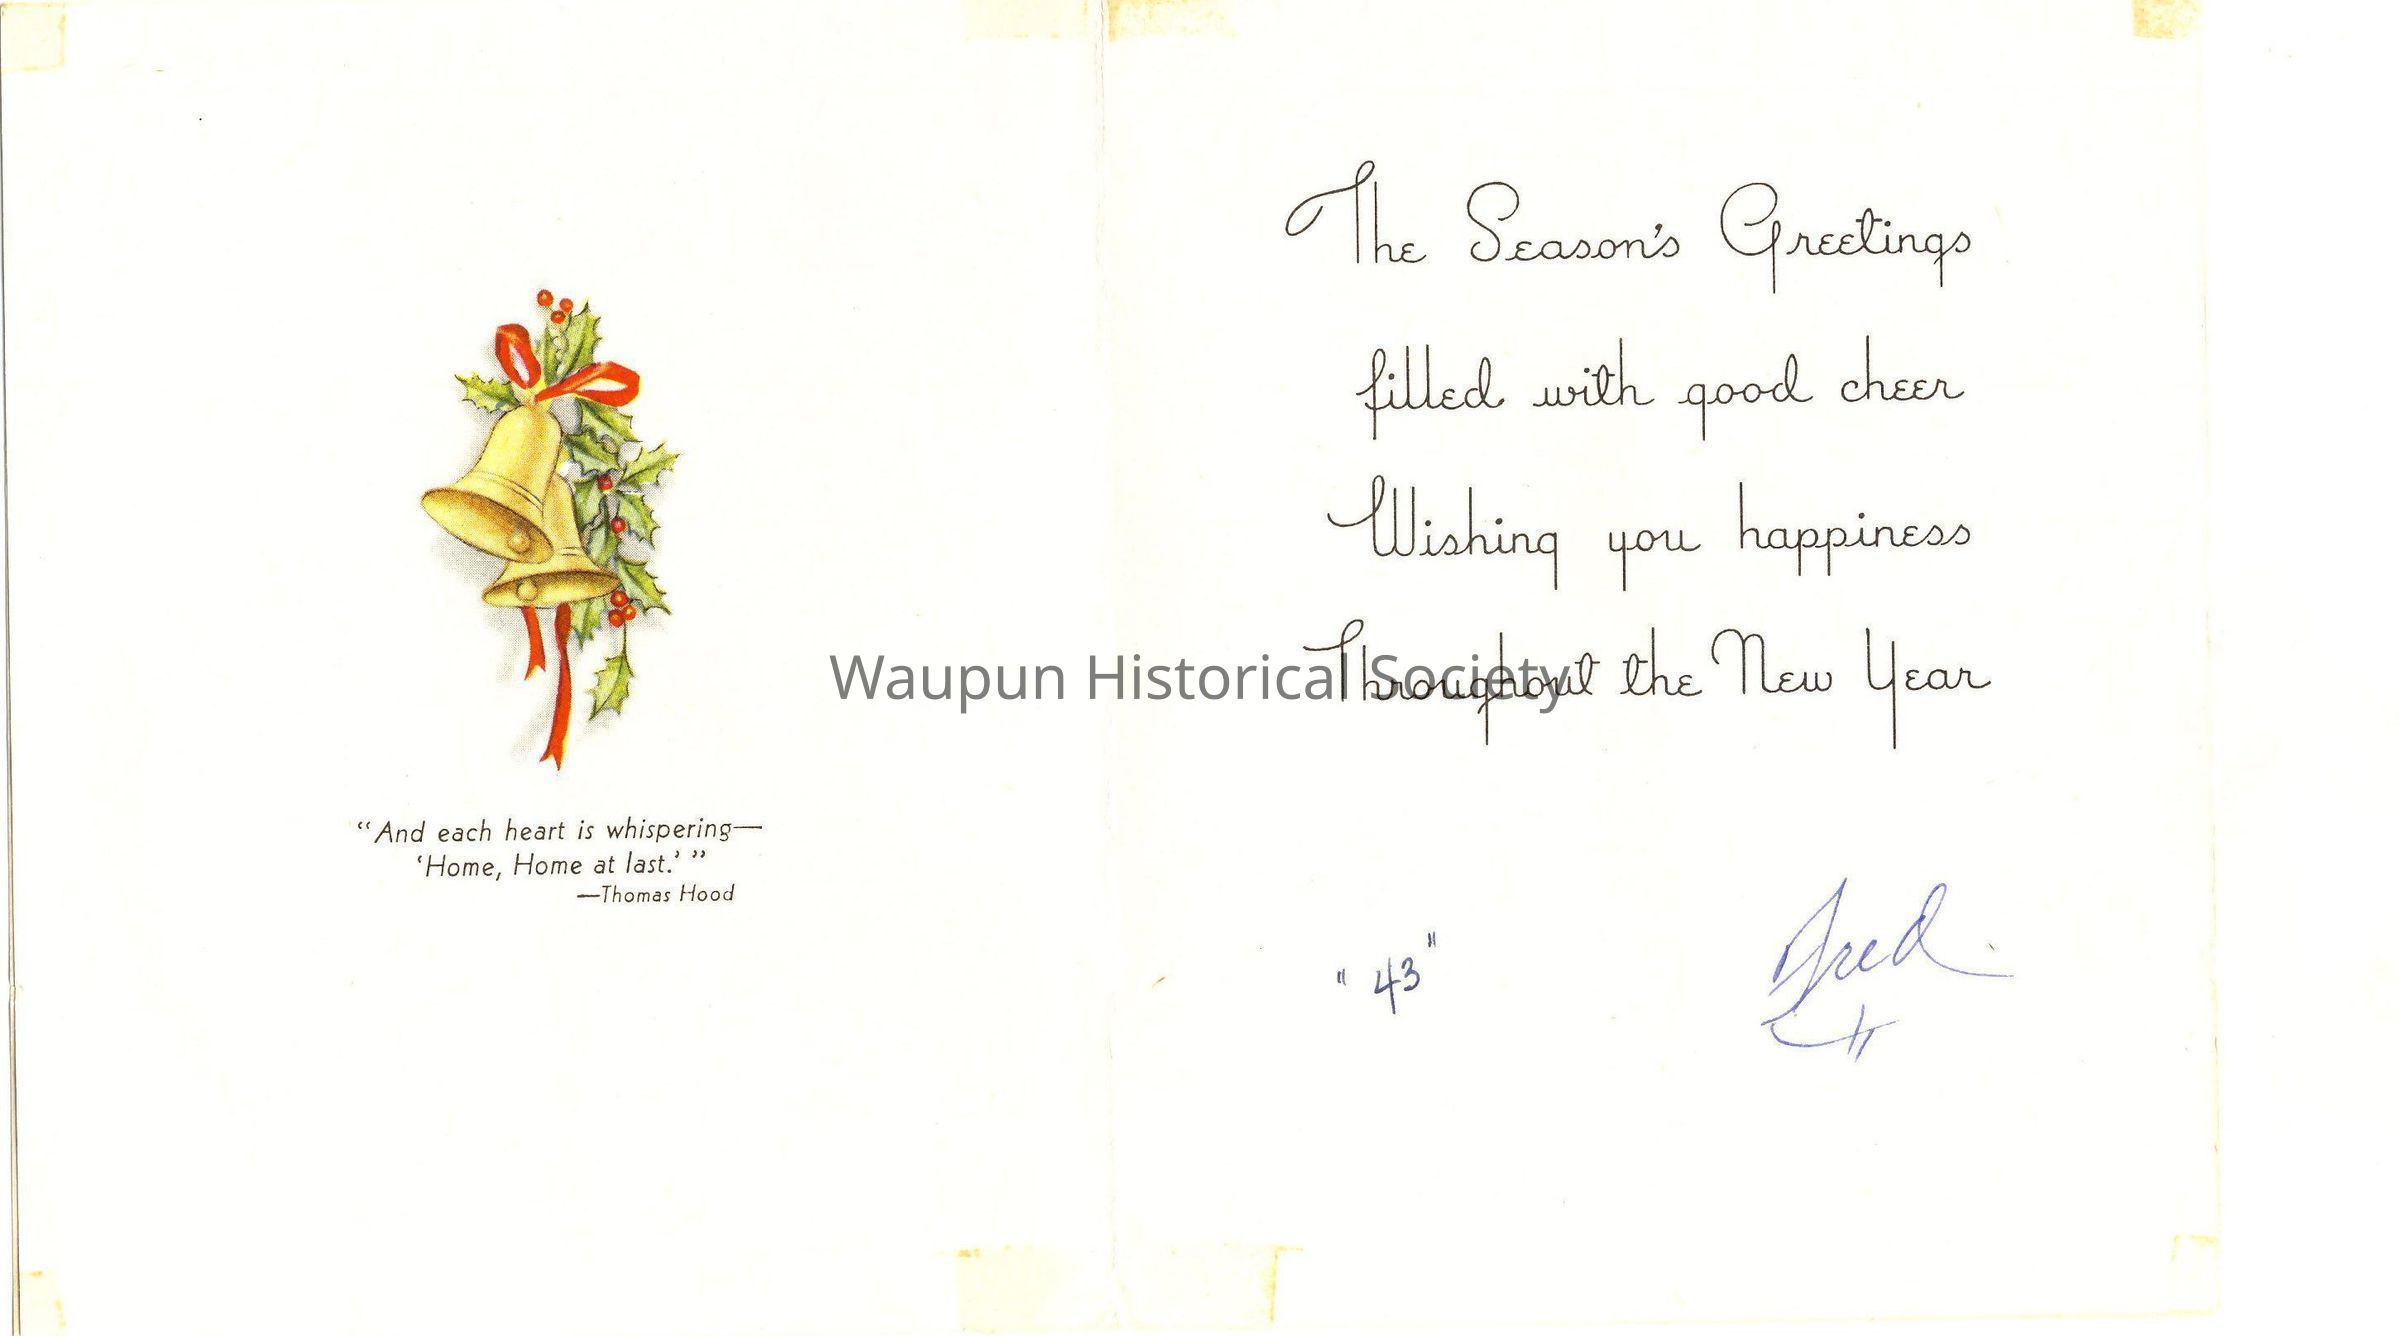 "And each heart is whispering—
'Home, Home at last.' "
—Thomas Hood
The Season's Greetings
filled with good cheer
Wishing you happiness
Throughout the New Year
"43"
Fred
Waupun Historical Society